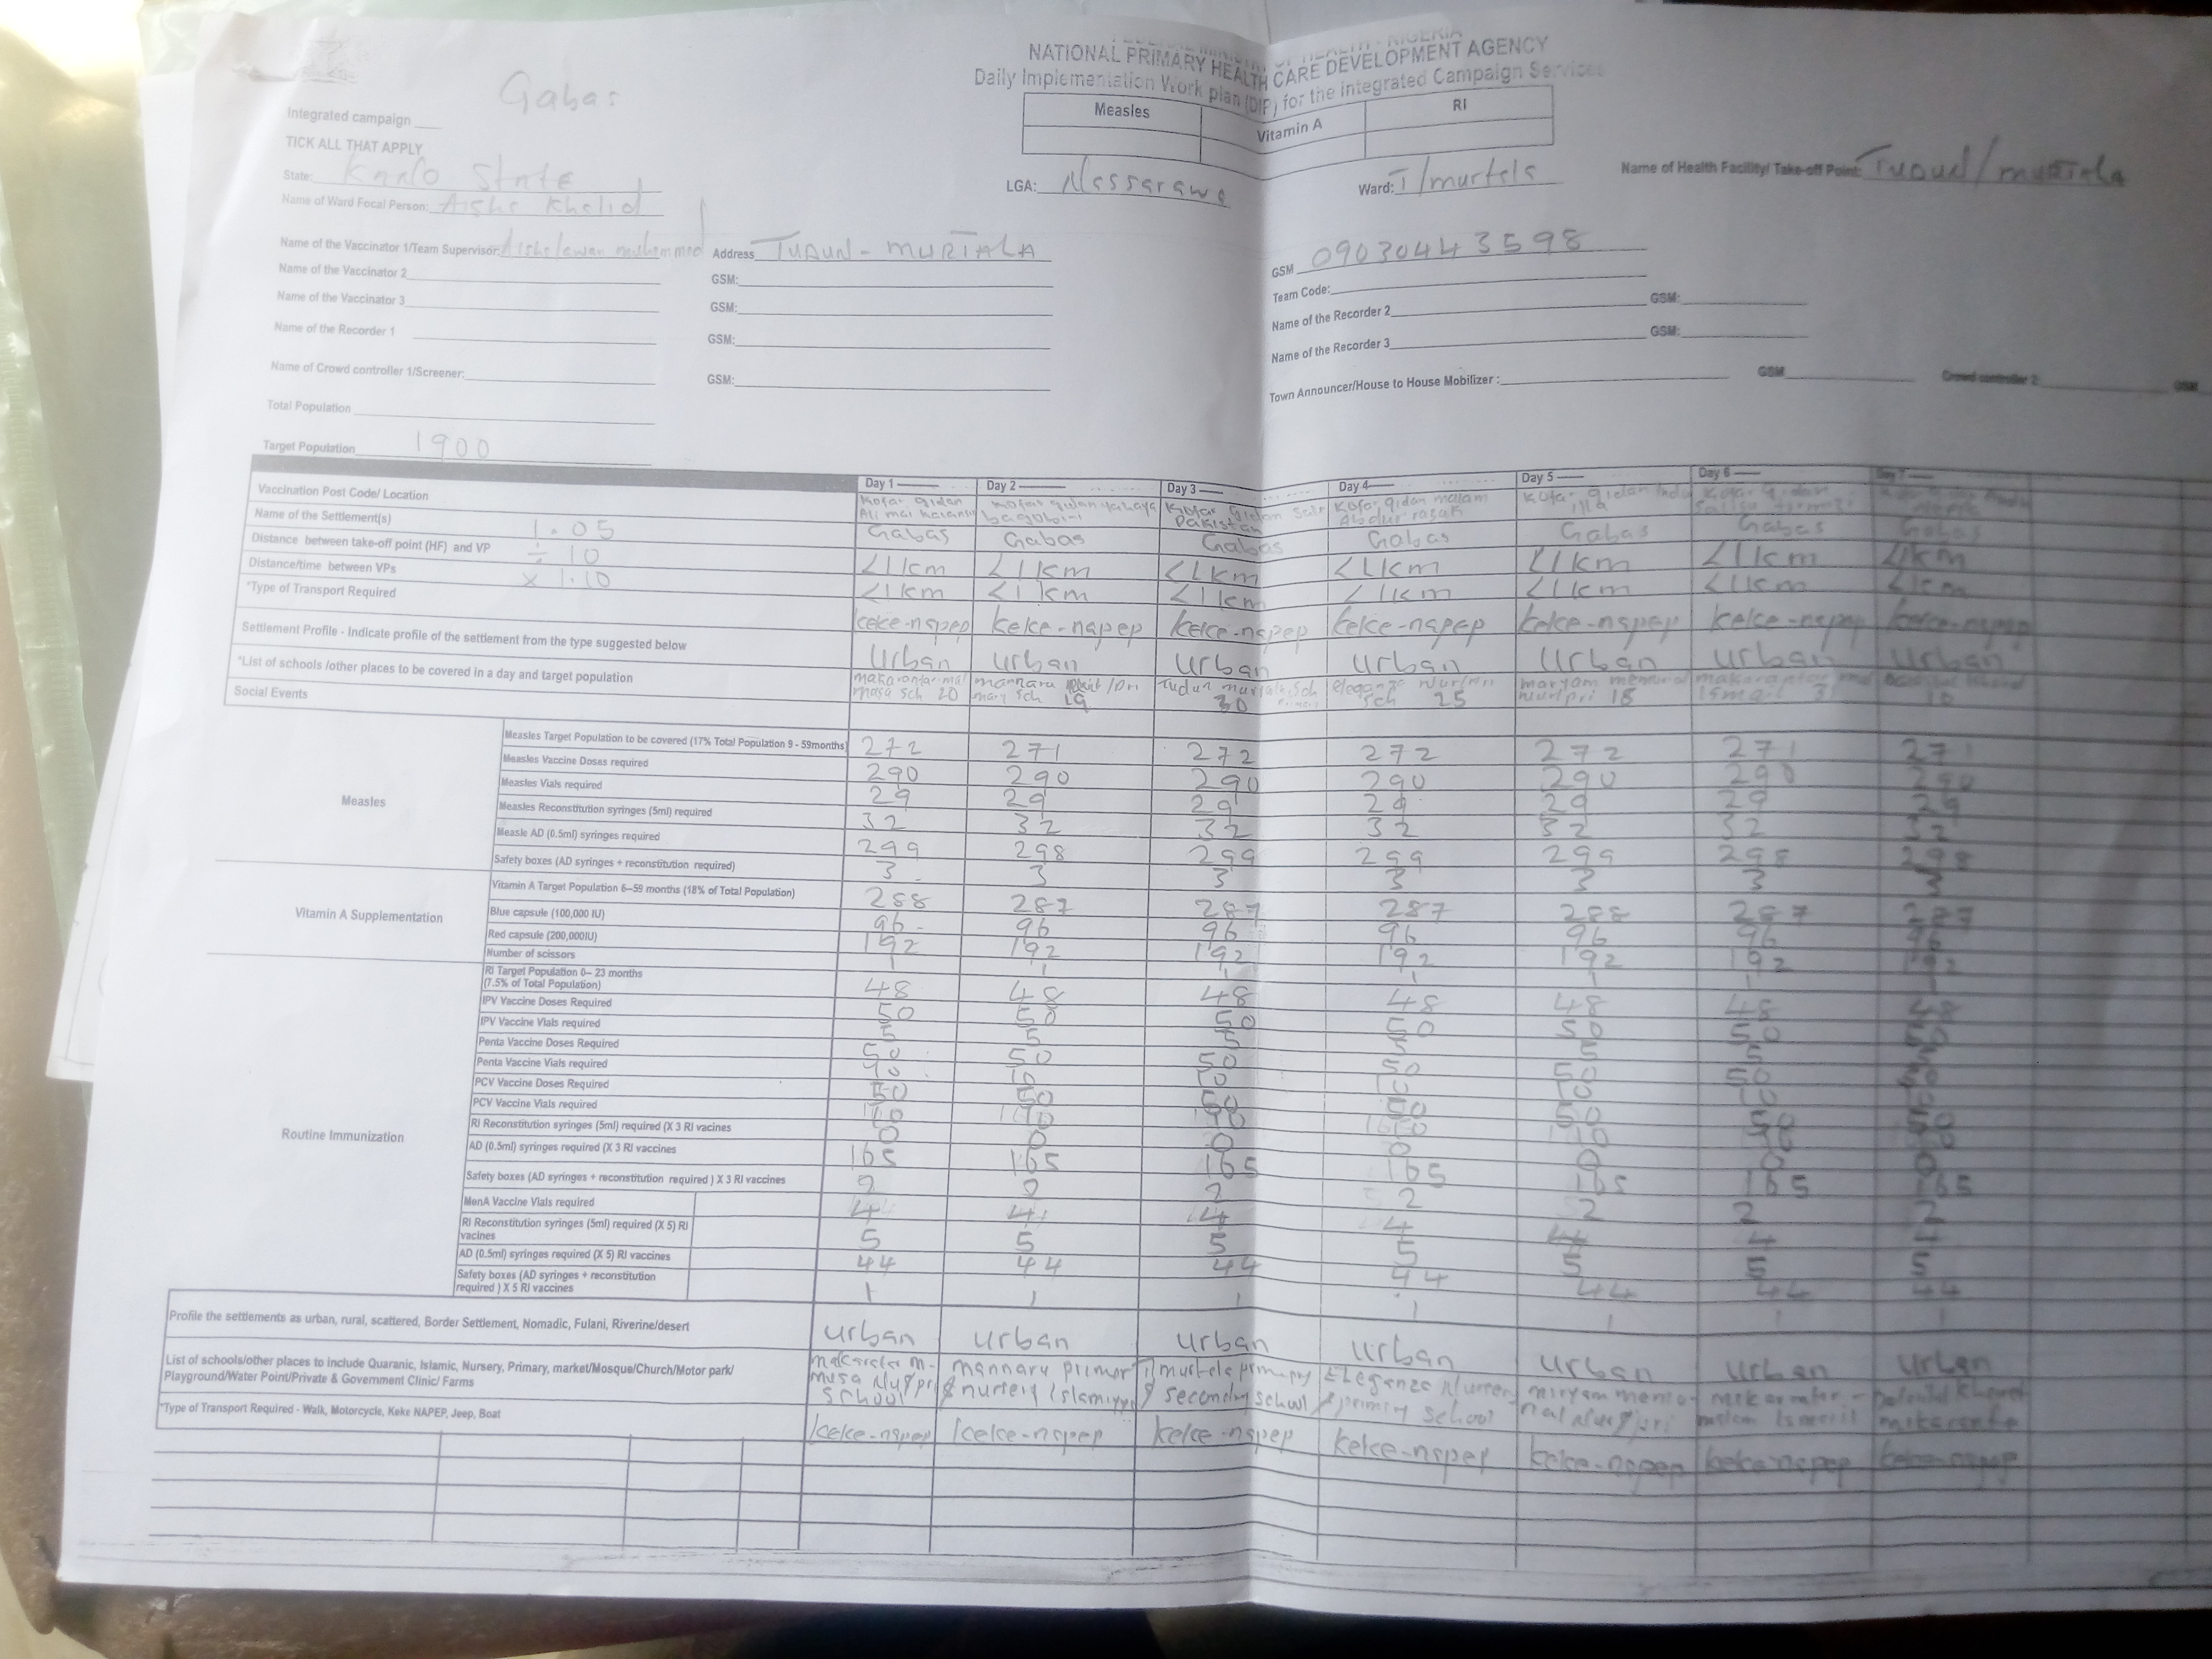 Gabas
NATIONAL PRIMARY HEALTH CARE DEVELOPMENT AGENCY
Daily Implementation Work plan (DIP) for the integrated Campaign Services
Integrated campaign
Measles Vitamin A RI
TICK ALL THAT APPLY
State: Kano State LGA: Nassarawa Ward: T/murtala Name of Health Facility/ Take-off Point: Tudun/murtala
Name of Ward Focal Person: Aisha Khalid
Name of the Vaccinator 1/Team Supervisor: Aisha lawan muhammad Address Tudun - MURTALA GSM 09030443598
Name of the Vaccinator 2 GSM: Team Code:
Name of the Vaccinator 3 GSM: Name of the Recorder 2 GSM:
Name of the Recorder 1 GSM: Name of the Recorder 3 GSM:
Name of Crowd controller 1/Screener: GSM: Town Announcer/House to House Mobilizer : GSM Crowd controller 2: GSM
Total Population
Target Population 1900
Day 1 Day 2 Day 3 Day 4 Day 5 Day 6 Day 7
Vaccination Post Code/ Location Kofar gidan Ali mai Kofar gidan Yahaya Kofar Gidan Pakistan Kofar gidan malam Abdurrazak Kofar gidan Kofar Gidan
Name of the Settlement(s) 1.05 Gabas Gabas Gabas Gabas Gabas Gabas Gabas
Distance between take-off point (HF) and VP ÷ 10 <1km <1km <1km <1km <1km <1km <1km
Distance/time between VPs x 1.10 <1km <1km <1km <1km <1km <1km <1km
*Type of Transport Required keke-napep keke-napep keke-napep keke-napep keke-napep keke-napep keke-napep
Settlement Profile - Indicate profile of the settlement from the type suggested below Urban urban urban urban Urban urban urban
*List of schools /other places to be covered in a day and target population masa sch 20 mary sch 19 Tudun murtala sch 30 sch 25 maryam memorial nur/pri 18 10
Social Events
Measles
Measles Target Population to be covered (17% Total Population 9 - 59months) 272 271 272 272 272 271 271
Measles Vaccine Doses required 290 290 290 290 290 290 290
Measles Vials required 29 29 29 29 29 29 29
Measles Reconstitution syringes (5ml) required 32 32 32 32 32 32 32
Measle AD (0.5ml) syringes required 299 298 299 299 299 298 298
Safety boxes (AD syringes + reconstitution required) 3 3 3 3 3 3 3
Vitamin A Supplementation
Vitamin A Target Population 6–59 months (18% of Total Population) 288 287 287 287 288 287 287
Blue capsule (100,000 IU) 96 96 96 96 96 96 96
Red capsule (200,000IU) 192 192 192 192 192 192 192
Number of scissors 1 1 1 1 1 1 1
Routine Immunization
RI Target Population 0– 23 months
(7.5% of Total Population) 48 48 48 48 48 48 48
IPV Vaccine Doses Required 50 50 50 50 50 50 50
IPV Vaccine Vials required 5 5 5 5 5 5 5
Penta Vaccine Doses Required 50 50 50 50 50 50 50
Penta Vaccine Vials required 10 10 10 10 10 10
PCV Vaccine Doses Required 50 50 50 50 50 50 50
PCV Vaccine Vials required
RI Reconstitution syringes (5ml) required (X 3 RI vacines 0 0 0 0 0 0 0
AD (0.5ml) syringes required (X 3 RI vaccines 165 165 165 165 165 165 165
Safety boxes (AD syringes + reconstitution required ) X 3 RI vaccines 2 2 2 2 2 2 2
MenA Vaccine Vials required 4 4 4 4 4 4 4
RI Reconstitution syringes (5ml) required (X 5) RI
vacines 5 5 5 5 5 5 5
AD (0.5ml) syringes required (X 5) RI vaccines 44 44 44 44 44 44 44
Safety boxes (AD syringes + reconstitution
required ) X 5 RI vaccines 1 1 1 1 1 1 1
Profile the settlements as urban, rural, scattered, Border Settlement, Nomadic, Fulani, Riverine/desert urban urban urban urban urban urban urban
List of schools/other places to include Quaranic, Islamic, Nursery, Primary, market/Mosque/Church/Motor park/
Playground/Water Point/Private & Government Clinic/ Farms
musa school mannary primar & nursery Islamiyya T murtala primary & secondary school Eleganza Nursery & primary school
*Type of Transport Required - Walk, Motorcycle, Keke NAPEP, Jeep, Boat keke-napep keke-napep keke-napep keke-napep keke-napep keke-napep keke-napep